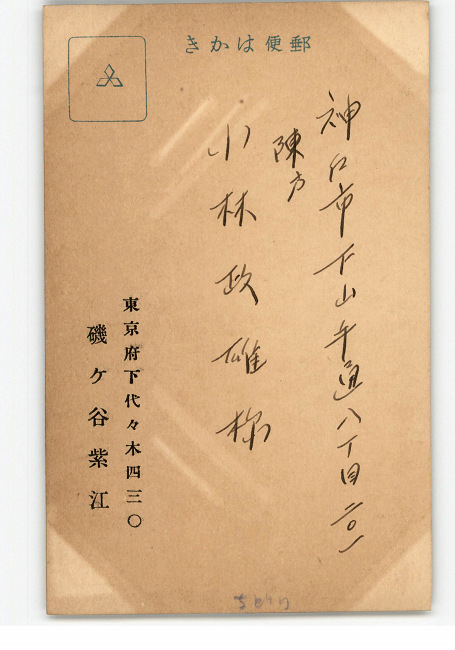 郵便はかき
神戸市下山手通八丁目二〇一
陳方
小林政雄様
東京府下代々木四三〇
磯ケ谷紫江